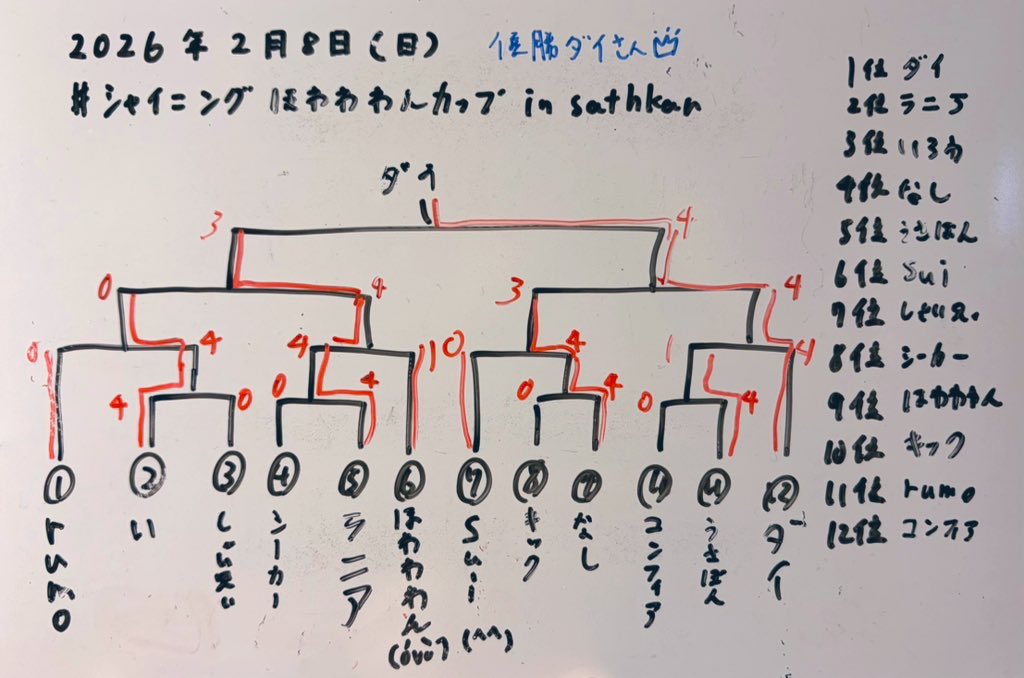 2026年2月8日(日) 優勝ダイさん
#シャイニングほわわわんカップ in sathkan
1位 ダイ
2位 ラニア
3位 いろは
4位 なし
5位 うさぽん
6位 sui
8位 シーカー
9位 ほわわわん
10位 キック
11位 rumo
12位 コンフィア
ダイ
3 4
0 4 3 4
0 4 4 1 0 4 1 4
4 0 0 4 0 4 0 4
① ② ③ ④ ⑤ ⑥ ⑦ ⑧ ⑨ ⑫
rumo
い
シーカー
ラニア
ほわわわん
キック
なし
コンフィア
うさぽん
ダイ
(^^)